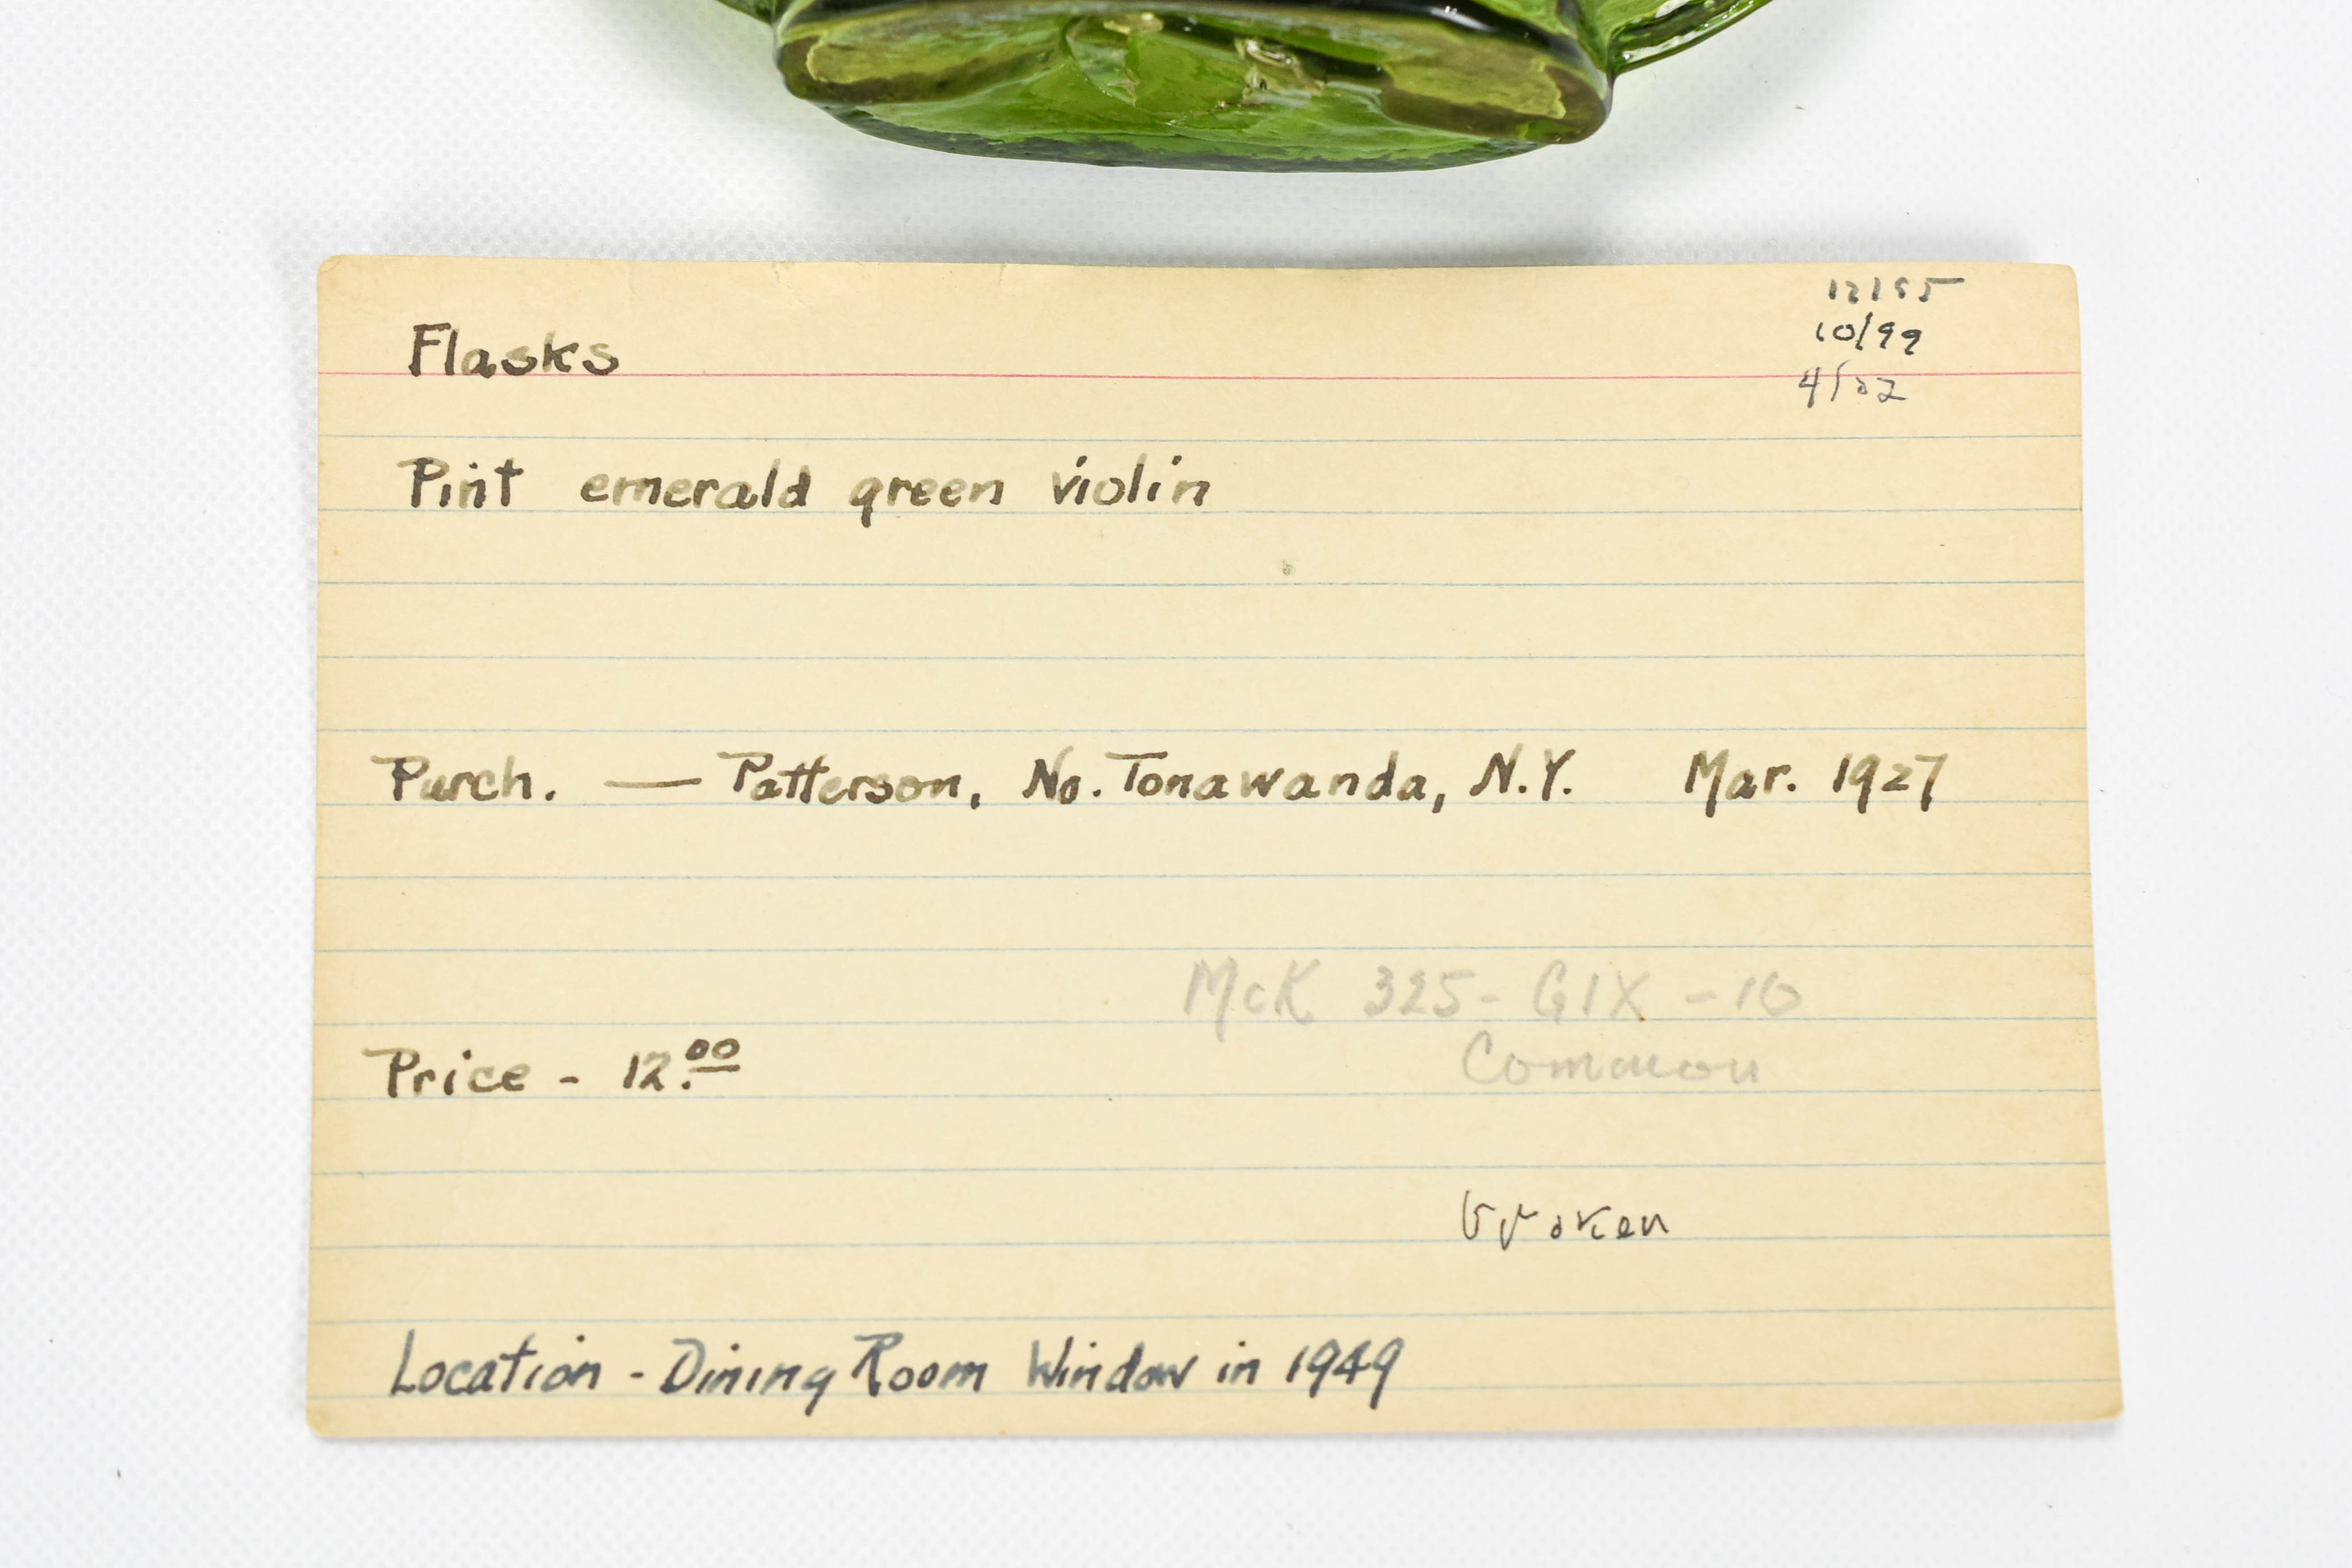 12185
10/99
Flasks
4/02
Pint emerald green violin
Purch. — Patterson, No. Tonawanda, N.Y. Mar. 1927
McK 325- GIX - 10
Common
Price - 12.00
broken
Location - Dining Room Window in 1949